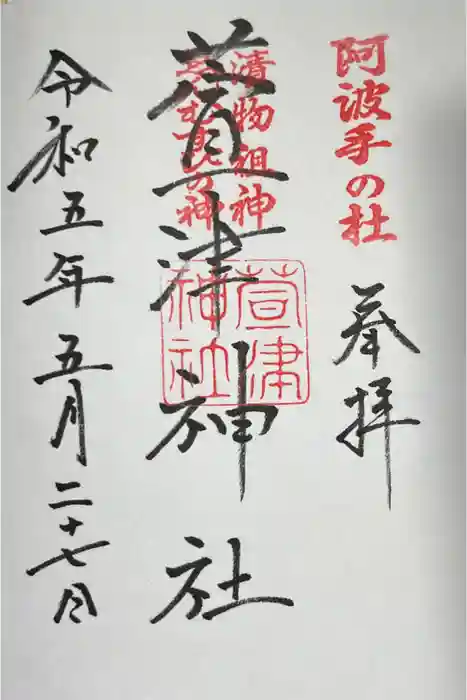 阿波手の杜
奉拝
漬物祖神
の神
萱津神社
萱津
神社
令和五年五月二十七日